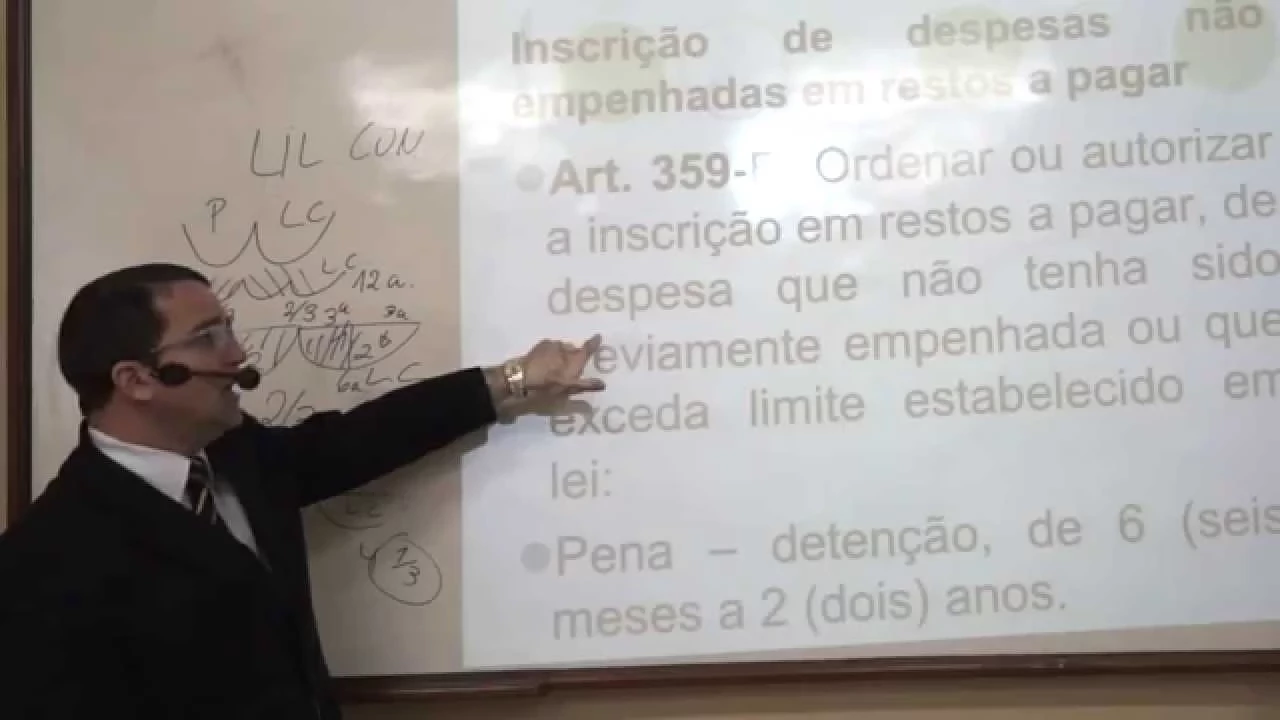 Inscrição de despesas não
empenhadas em restos a pagar
Art. 359- Ordenar ou autorizar
a inscrição em restos a pagar, de
despesa que não tenha sido
eviamente empenhada ou que
exceda limite estabelecido em
lei:
Pena – detenção, de 6 (seis
meses a 2 (dois) anos.
LIL CON
P LC
LC 12 a.
2/3 3ª
LC
1/3